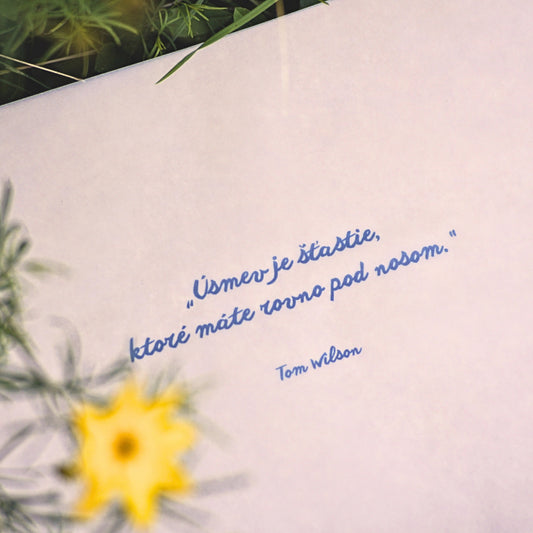 „Úsmev je šťastie,
ktoré máte rovno pod nosom."
Tom Wilson